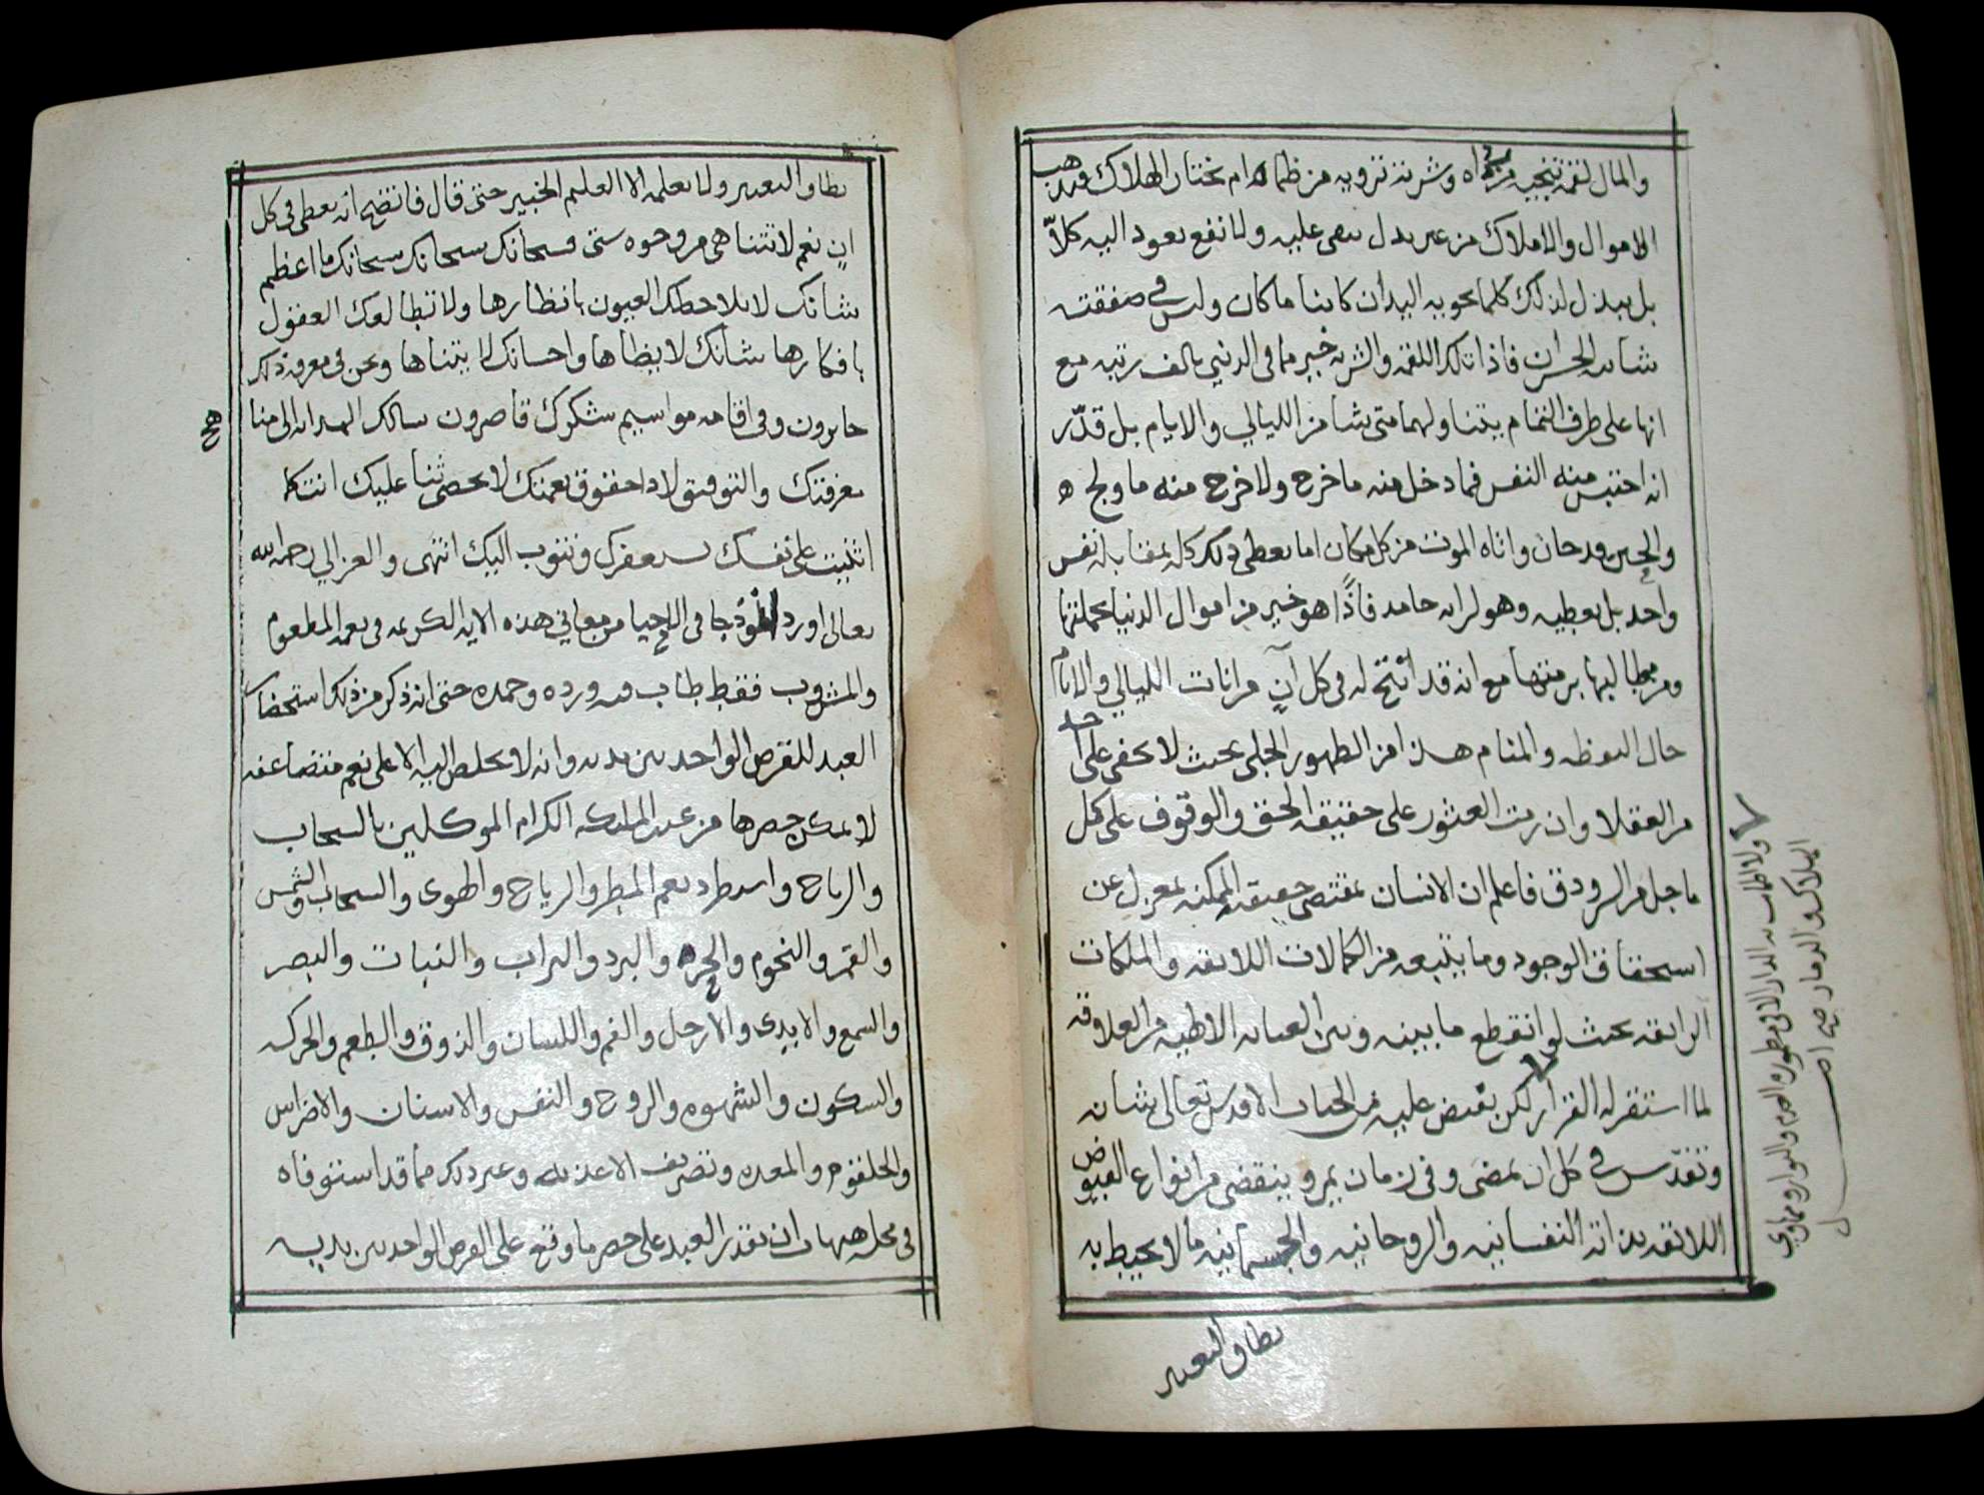 والمال لقمة تنجيه من شجاه وشربة ترويه من ظماه ام يختار الهلاك فيذهب
الاموال والاملاك من غير بدل يبقى عليه ولا نفع يعود اليه كلّا
بل يبذل لذلك كلما يحويه اليدان كائنا ما كان وليس في صفقته
شائبة الخسران فاذا تلك اللقمة والشربة خير مما في الدنيا بالف رتبة مع
انها على طرف الثمام يتناولهما متى شا من الليالي والايام بل قدّر
انه احتبس منه النفس فما دخل منه ما خرج ولا خرج منه ما ولج
والحين قد حان واتاه الموت من كل مكان اما يعطي ذلك كله بمقابلة نفس
واحد بل يعطيه وهو لرايه حامد فاذًا هو خير من اموال الدنيا بجملتها
ومطالبها برمتها مع انه قد اتيح له في كل آن من انات الليالي والايام
حال اليقظة والمنام هذا من الظهور الجلي بحيث لا يخفى على احد
من العقلا وان رمت العثور على حقيقة الحق والوقوف على كل
ما جل من السر ودق فاعلم ان الانسان بمقتضى حقيقته الممكنة بمعزل عن
استحقاق الوجود وما يتبعه من الكمالات اللائقة والملكات
الرائقة بحيث لو انقطع ما بينه وبين العناية الالهية من العلاقة
لما استقر له القرار لكن يفيض عليه من الجناب الاقدس تعالى شانه
وتقدّس في كل ان يمضى وفي زمان يمر وينقضى من انواع الفيوض
اللائقة بذاته النفسانية والروحانية والجسمانية ما لا يحيط به
نطاق التعبير
ولا اطمانت به الدار الا في مطمورة العدم والبوار ومهاوي
الهلاك والدمار صح اصل
نطاق التعبير ولا يعلمه الا العليم الخبير حتى قال فاتضح انه يعطى في كل
ان نعم لا تتناهى من وجوه ستى فسبحانك سبحانك سبحانك ما اعظم
شانك لا تلاحظك العيون بانظارها ولا تطالعك العقول
بافكارها شانك لا يضاها واحسانك لا يتناها ونحن في معرفة ذلك
حايرون وفي اقامة مواسيم شكرك قاصرون نسالك الهداية الى منا
هج
معرفتك والتوفيق لادا حقوق نعمتك لا نحصى ثنا عليك انت كما
اثنيت على نفسك نستغفرك ونتوب اليك انتهى والغزالي رحمه الله
تعالى اورد انموذجا في الاحيا من معاني هذه الاية الكريمة في نعمة المطعوم
والمشروب فقط طاب فيه ورده وحمده حتى انه ذكر من ذلك استحضار
العبد للقرص الواحد بين يديه وانه لا يخلص اليه الا على نعم متضاعفة
لا يمكن حصرها من عند الملئكة الكرام الموكلين بالسحاب
والرياح واستطرد نعم المطر والرياح والهوى والسحاب والشمس
والقمر والنجوم والحر والبرد والتراب والنبات والبصر
والسمع والايدي والارجل والفم واللسان والذوق والطعم والحركة
والسكون والشهوة والروح والنفس والاسنان والاضراس
والحلقوم والمعدة وتصريف الاغذية وغير ذلك مما قد استوفاه
في محله هيهات ان يقدر العبد على حصر ما وقع على القرص الواحد بين يديه